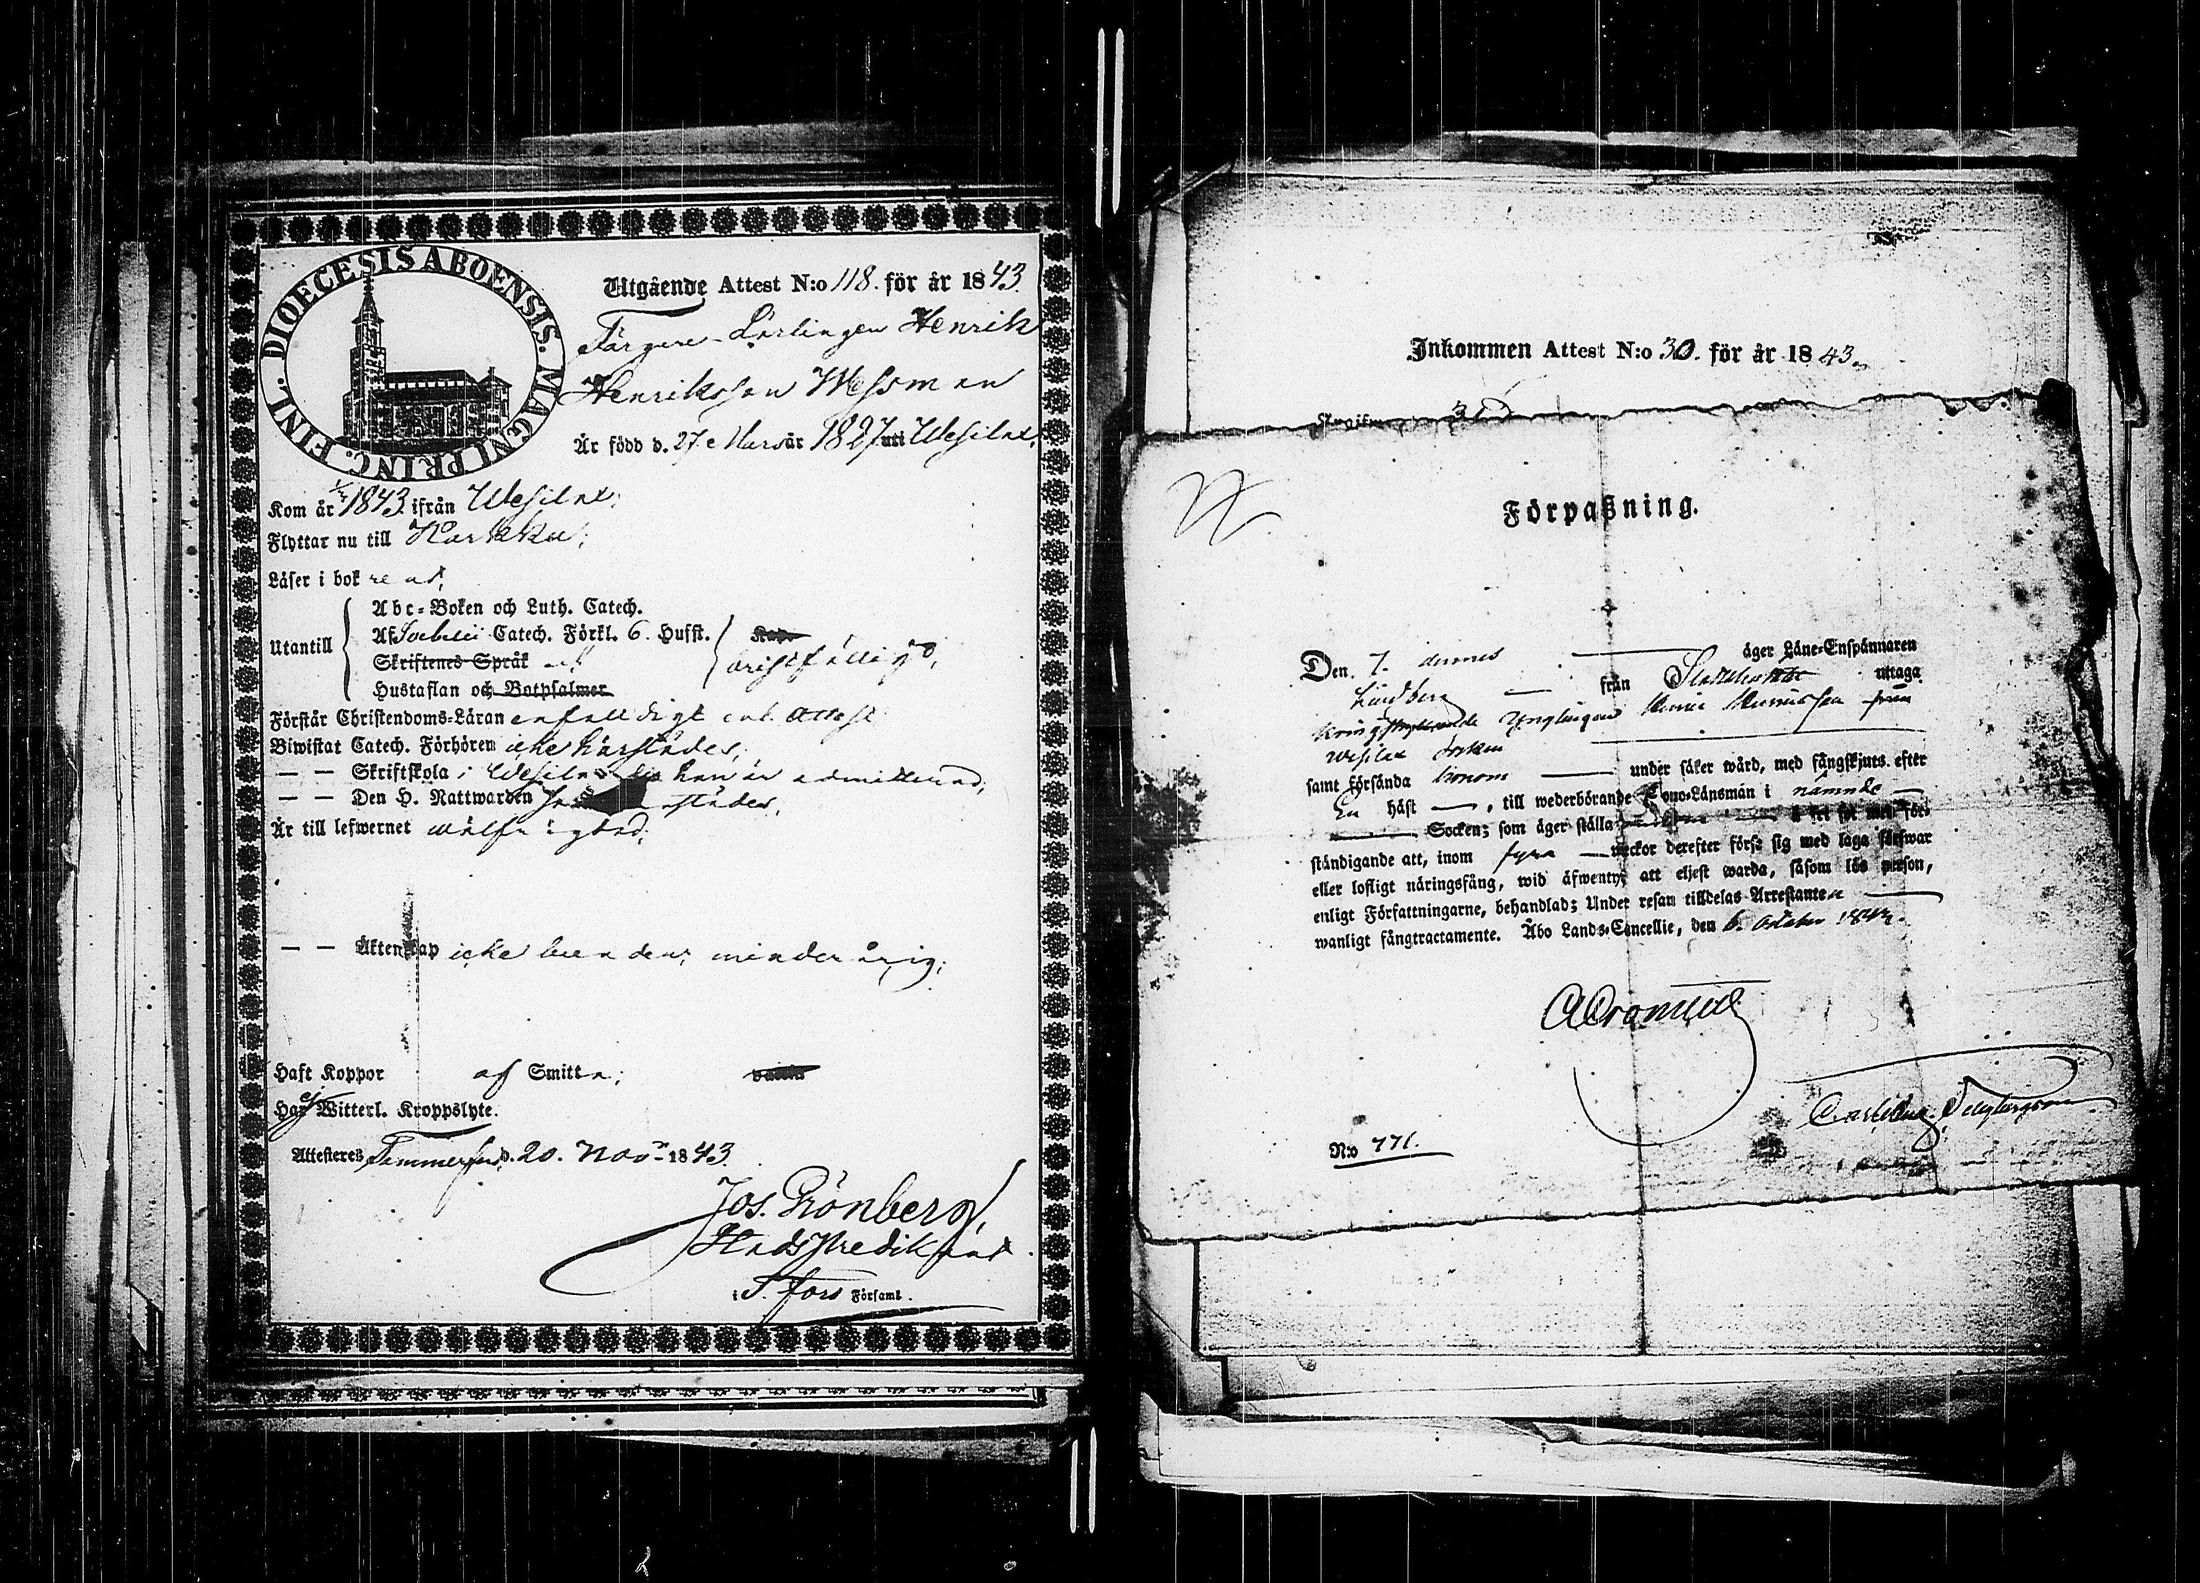 FINL. DIOECESIS ABOENSIS. MAGNI PRINC.
Utgående Attest N:o 118. för år 1843.
Färgare-Lärlingen Henrik
Henriksson Wessman
Är född d. 27 Mars år 1827 uti Wesilax.
Kom år 1843 ifrån Wesilax.
Flyttar nu till Karkku.
Läser i bok
Utantill
Abc-Boken och Luth. Catech.
Af Svebelii Catech. Förkl. 6. Hufst.
Skriftenes Språk
Hustaflan och Botpsalmer
bristfälligt,
Förstår Christendoms-Läran enfaldigt enl. Attest
Biwistat Catech. Förhören icke härstädes,
— — Skriftskola i Wesilax der han är admitterad,
— — Den H. Nattwarden städes,
Är till lefwernet wälfrägdad.
— — Äktenskap icke bunden, minderårig.
Haft Koppor af Smitta;
Har ej Witterl. Kroppslyte.
Attesteres Tammerfors d. 20. Nov. 1843.
Jos. Grönberg,
Stads Predikant.
i T.fors Församl.
Inkommen Attest N:o 30. för år 1843.
Förpaßning.
Den 7. dennes — äger Läns-Enspännaren
Lindberg — från Slottshäktet uttaga
kringstrykande Ynglingen från
Wesilax Socken
samt försända honom — under säker wård, med fångskjuts efter
En häst —, till wederbörande Crono-Länsman i nämnde —
— Socken; som äger ställa å fri fot med för-
ständigande att, inom fyra — weckor derefter förse sig med laga förswar
eller lofligt näringsfång, wid äfwentyr att eljest warda, såsom lös person,
enligt Författningarne, behandlad; Under resan tilldelas Arrestanten —
wanligt fångtractamente. Åbo Lands-Cancellie, den 6. October
N:o 771.